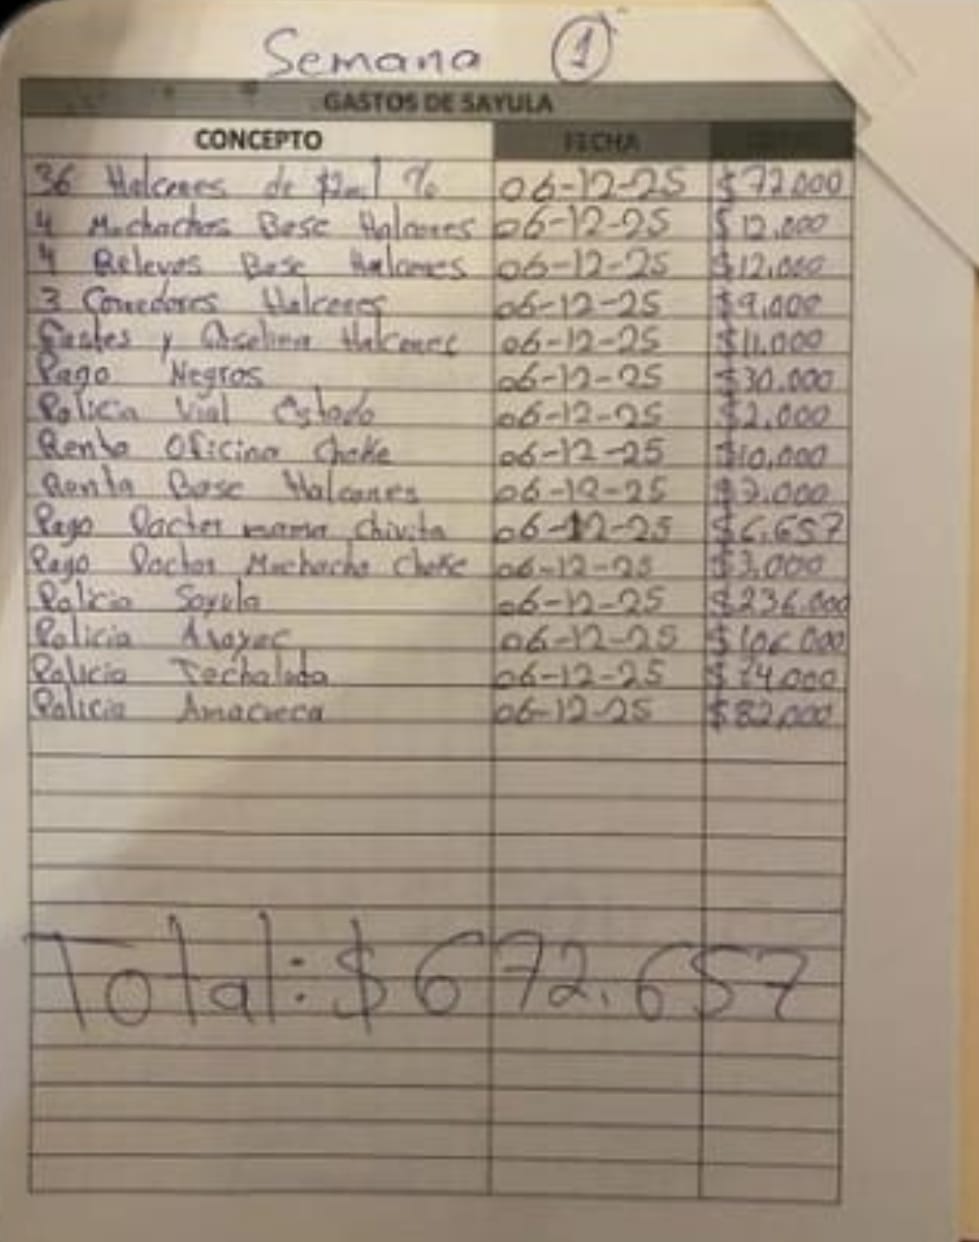 Semana 1
GASTOS DE SAYULA
CONCEPTO FECHA
36 Halcones de $2mil % 06-12-25 $72.000
4 Muchachos Base Halcones 06-12-25 $12.000
4 Relevos Base Halcones 06-12-25 $12.000
3 Comedores Halcones 06-12-25 $9.000
Gastos y Gasolina Halcones 06-12-25 $11.000
Pago Negros 06-12-25 $30.000
Policia Vial Estado 06-12-25 $2.000
Renta Oficina Choke 06-12-25 $10.000
Renta Base Halcones 06-12-25
Pago Doctor mama Chivita 06-12-25 $6.657
Pago Doctor Muchacho Choke 06-12-25 $3.000
Policia Sayula 06-12-25 $236.000
Policia 06-12-25
Policia Techaluta 06-12-25
Policia Amacueca 06-12-25 $82.000
Total: $672.657